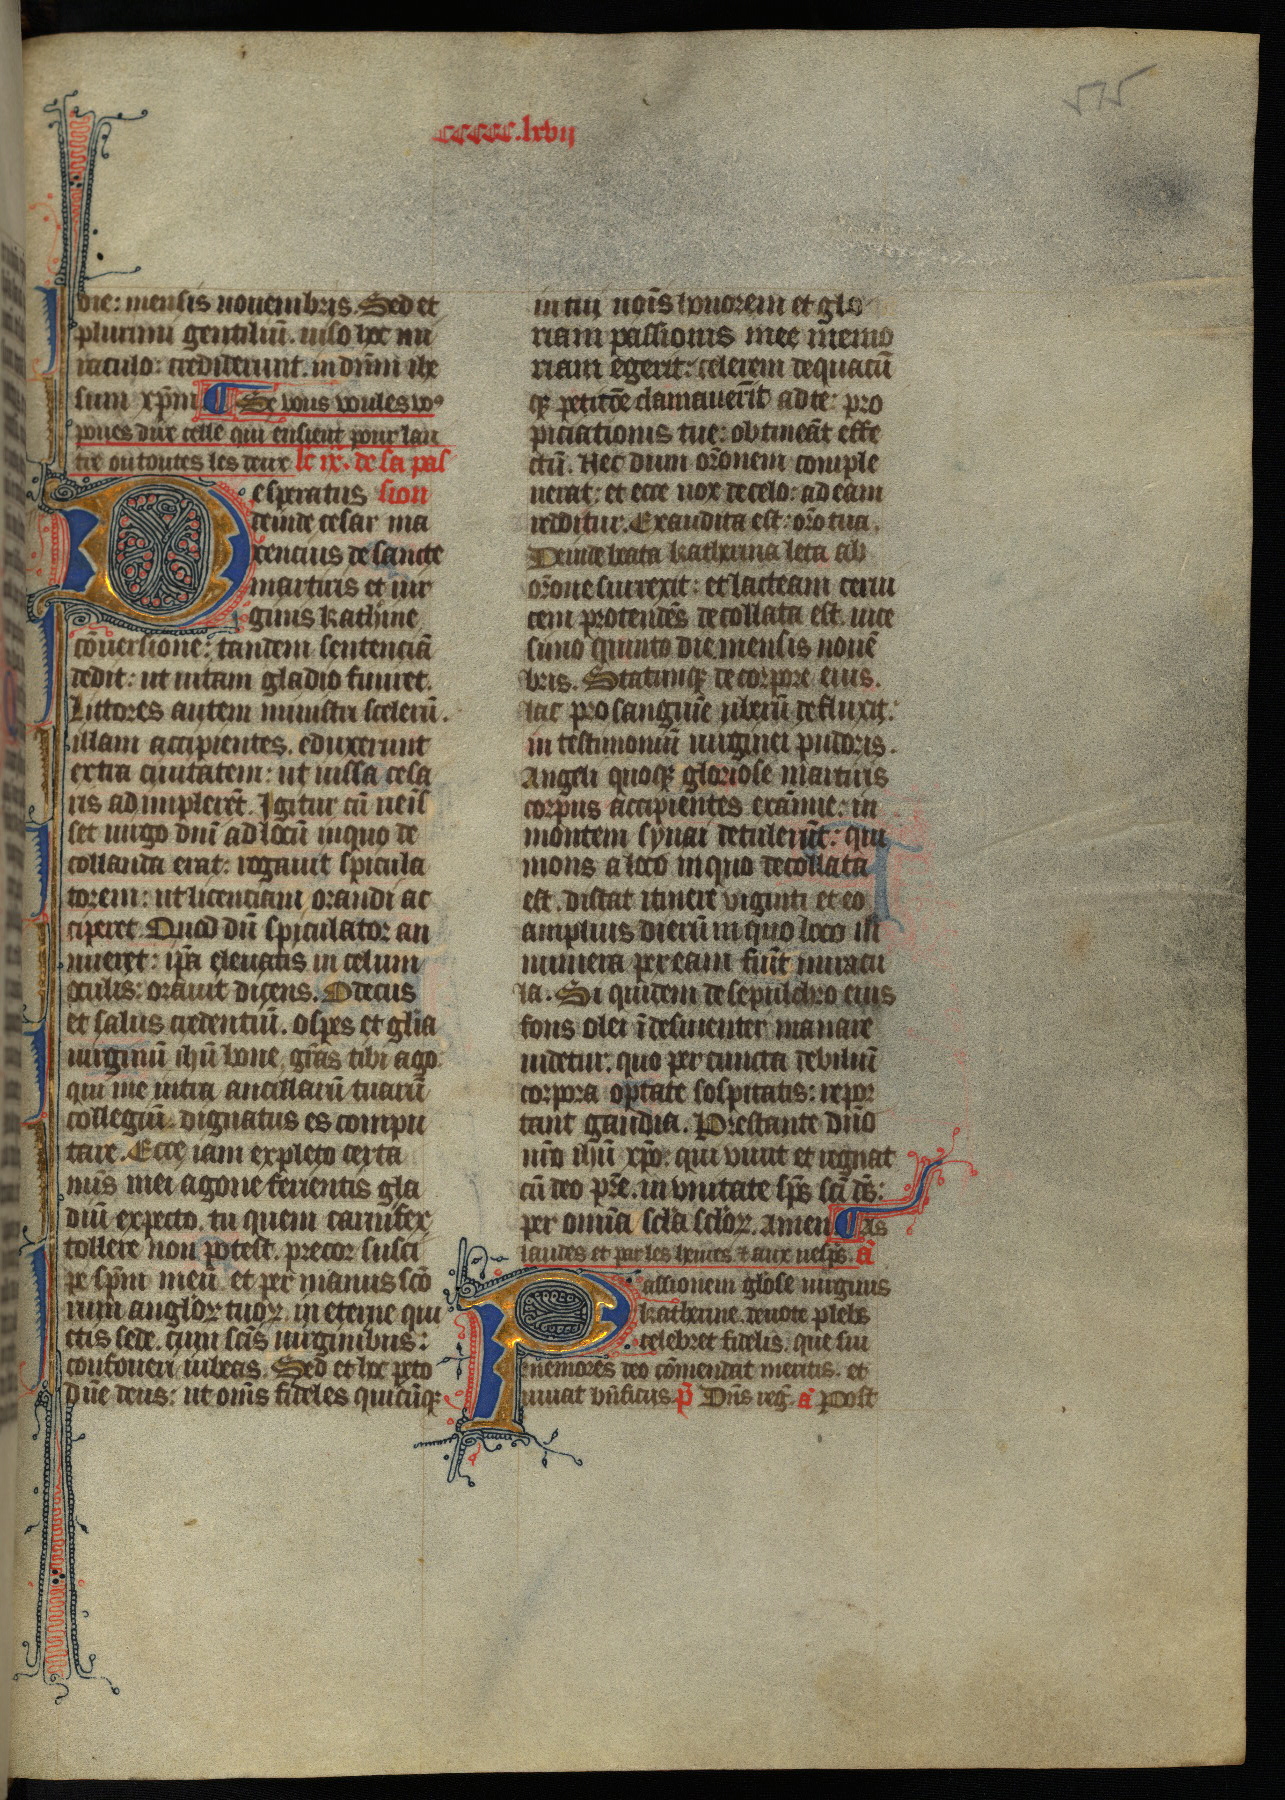 ccccc.lxvij
575
die: mensis nouembris. Sed et
plurimi gentiliū. uiso hoc mi
raculo: crediderunt. in dn̄m ihe
sum xp̄m Se vous voules vo9
poues dire celle qui ensient pour lau
tre ou toutes les deux le ix. de sa pas
Desperatus sion
deinde cesar ma
xencius de sancte
martiris et uir
ginis katherine
cōuersione: tandem sentenciā
dedit: ut uitam gladio finiret.
Littores autem ministri scelerū.
illam accipientes. eduxerunt
extra ciuitatem: ut iussa cesa
ris adimplerēt. Igitur cū uenis
set uirgo dn̄i ad locū in quo de
collanda erat: rogauit spicula
torem: ut licentiam orandi ac
ciperet. Quod dū spiculator an
nueret: ip̄a eleuatis in celum
oculis: orauit dicens. O decus
et salus credentiū. o sp̄es et gl̄ia
uirginū ih̄u bone. gr̄as tibi ago.
qui me intra ancillarū tuarū
collegiū. dignatus es compu
tare. Ecce iam expleto certa
minis mei agone ferientis gla
diū expecto. tu quem carnifex
tollere non potest. precor susci
pe sp̄m meū. et per manus scō
rum anglorꝝ tuorꝝ. in eterne qui
etis sede. cum scīs uirginibus:
confoueri iubeas. Sed et hoc peto
dn̄e deus: ut om̄s fideles quicūqꝫ
in tui nōis honorem et glo
riam passionis mee memo
riam egerit: celerem de quacū
qꝫ petitōe clamauerit ad te: pro
piciationis tue: obtineāt effe
ctū. Hec dum orōnem comple
uerat: et ecce uox de celo: ad eam
redditur. Exaudita est: orō tua.
Deinde beata katherina leta ab
orōne surrexit: et lacteam cerui
cem protendēs decollata est. uice
simo quinto die mensis nouē
bris. Statimqꝫ de corpore eius.
lac pro sanguine uberū defluxit.
in testimoniū uirginei pudoris.
Angeli quoqꝫ gloriose martiris
corpus accipientes exānime: in
montem synai detulerūt: qui
mons a loco in quo decollata
est. distat itinere viginti et eo
amplius dierū in quo loco in
numera per eam fiūt miracu
la. Si quidem de sepulchro eius
fons olei īdesinenter manare
uidetur. quo per cuncta debiliū
corpora optate sospitatis: repor
tant gaudia. Prestante dn̄o
nr̄o ih̄u xp̄o. qui viuit et regnat
cū deo pr̄e. in vnitate sp̄s scī ds̄:
per om̄ia sc̄la sc̄lorꝝ. amen As
laudes et par les heures et aux uesp̄s. ā
Passionem gl̄ose uirginis
katherine. deuote plebs
celebret fidelis. que sui
memores deo cōmendat meritis. et
iuuat bn̄ficiis. p̄ Dn̄s reg̅. ā Post